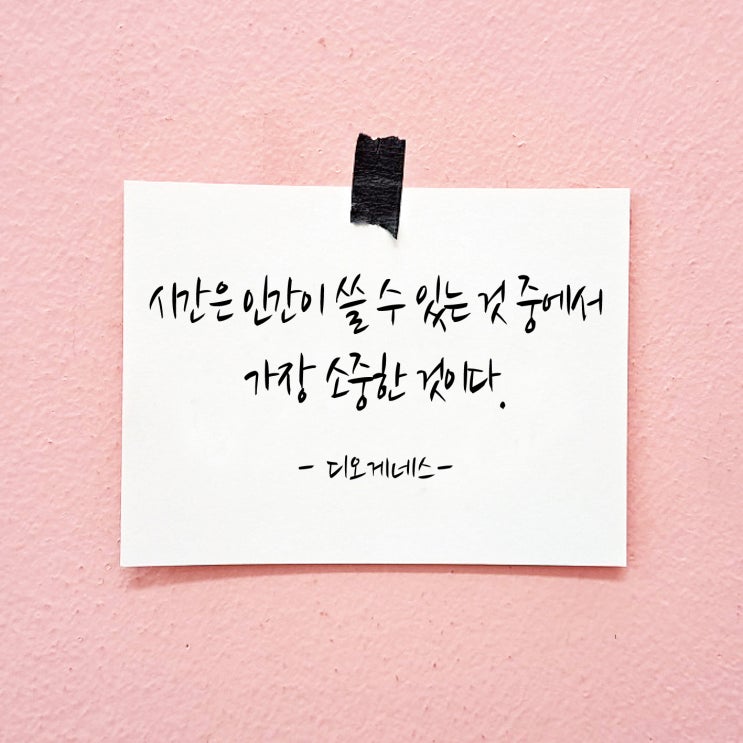 시간은 인간이 쓸 수 있는 것 중에서
가장 소중한 것이다.
- 디오게네스 -